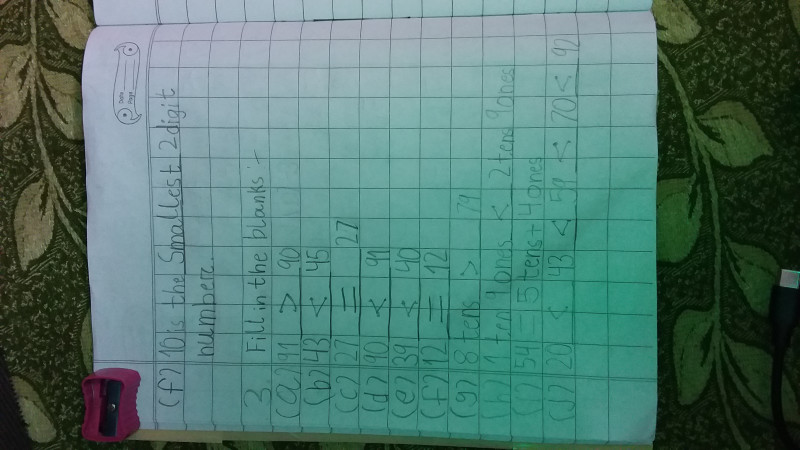 Date
Page
(f) 10 is the Smallest 2 digit
number.
3. Fill in the blanks :-
(a) 91 > 90
(b) 43 < 45
(c) 27 = 27
(d) 90 < 91
(e) 39 < 40
(f) 12 = 12
(g) 8 tens > 79
(h) 1 ten 9 ones < 2 tens 9 ones
(i) 54 = 5 tens + 4 ones
(j) 20 < 43 < 59 < 70 < 92